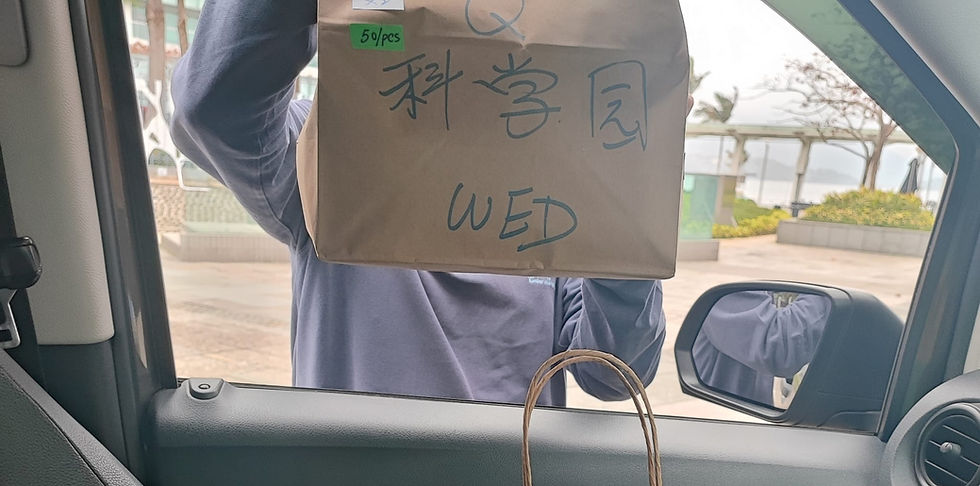 Q
50/pcs
科学园
WED